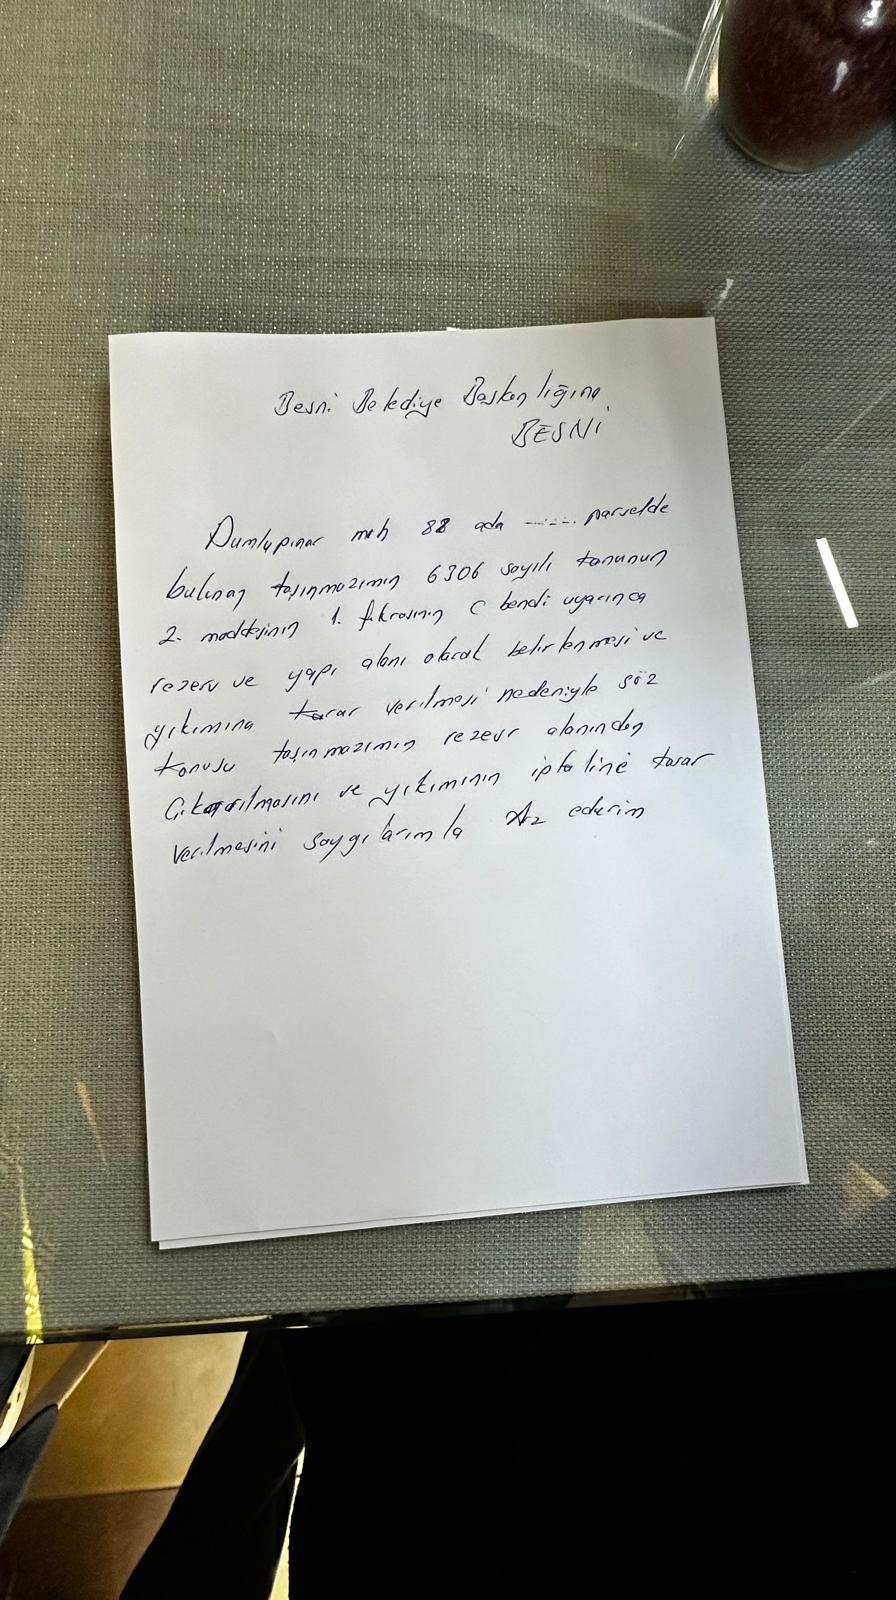 Besni Belediye Başkanlığına
BESNİ
Dumlupınar mah 88 ada ....... parselde
bulunan taşınmazımın 6306 sayılı kanunun
2. maddesinin 1. fıkrasının C bendi uyarınca
rezerv ve yapı alanı olarak belirlenmesi ve
yıkımına karar verilmesi nedeniyle söz
konusu taşınmazımın rezevr alanından
Çıkarılmasını ve yıkımının iptaline karar
verilmesini saygılarımla Arz ederim